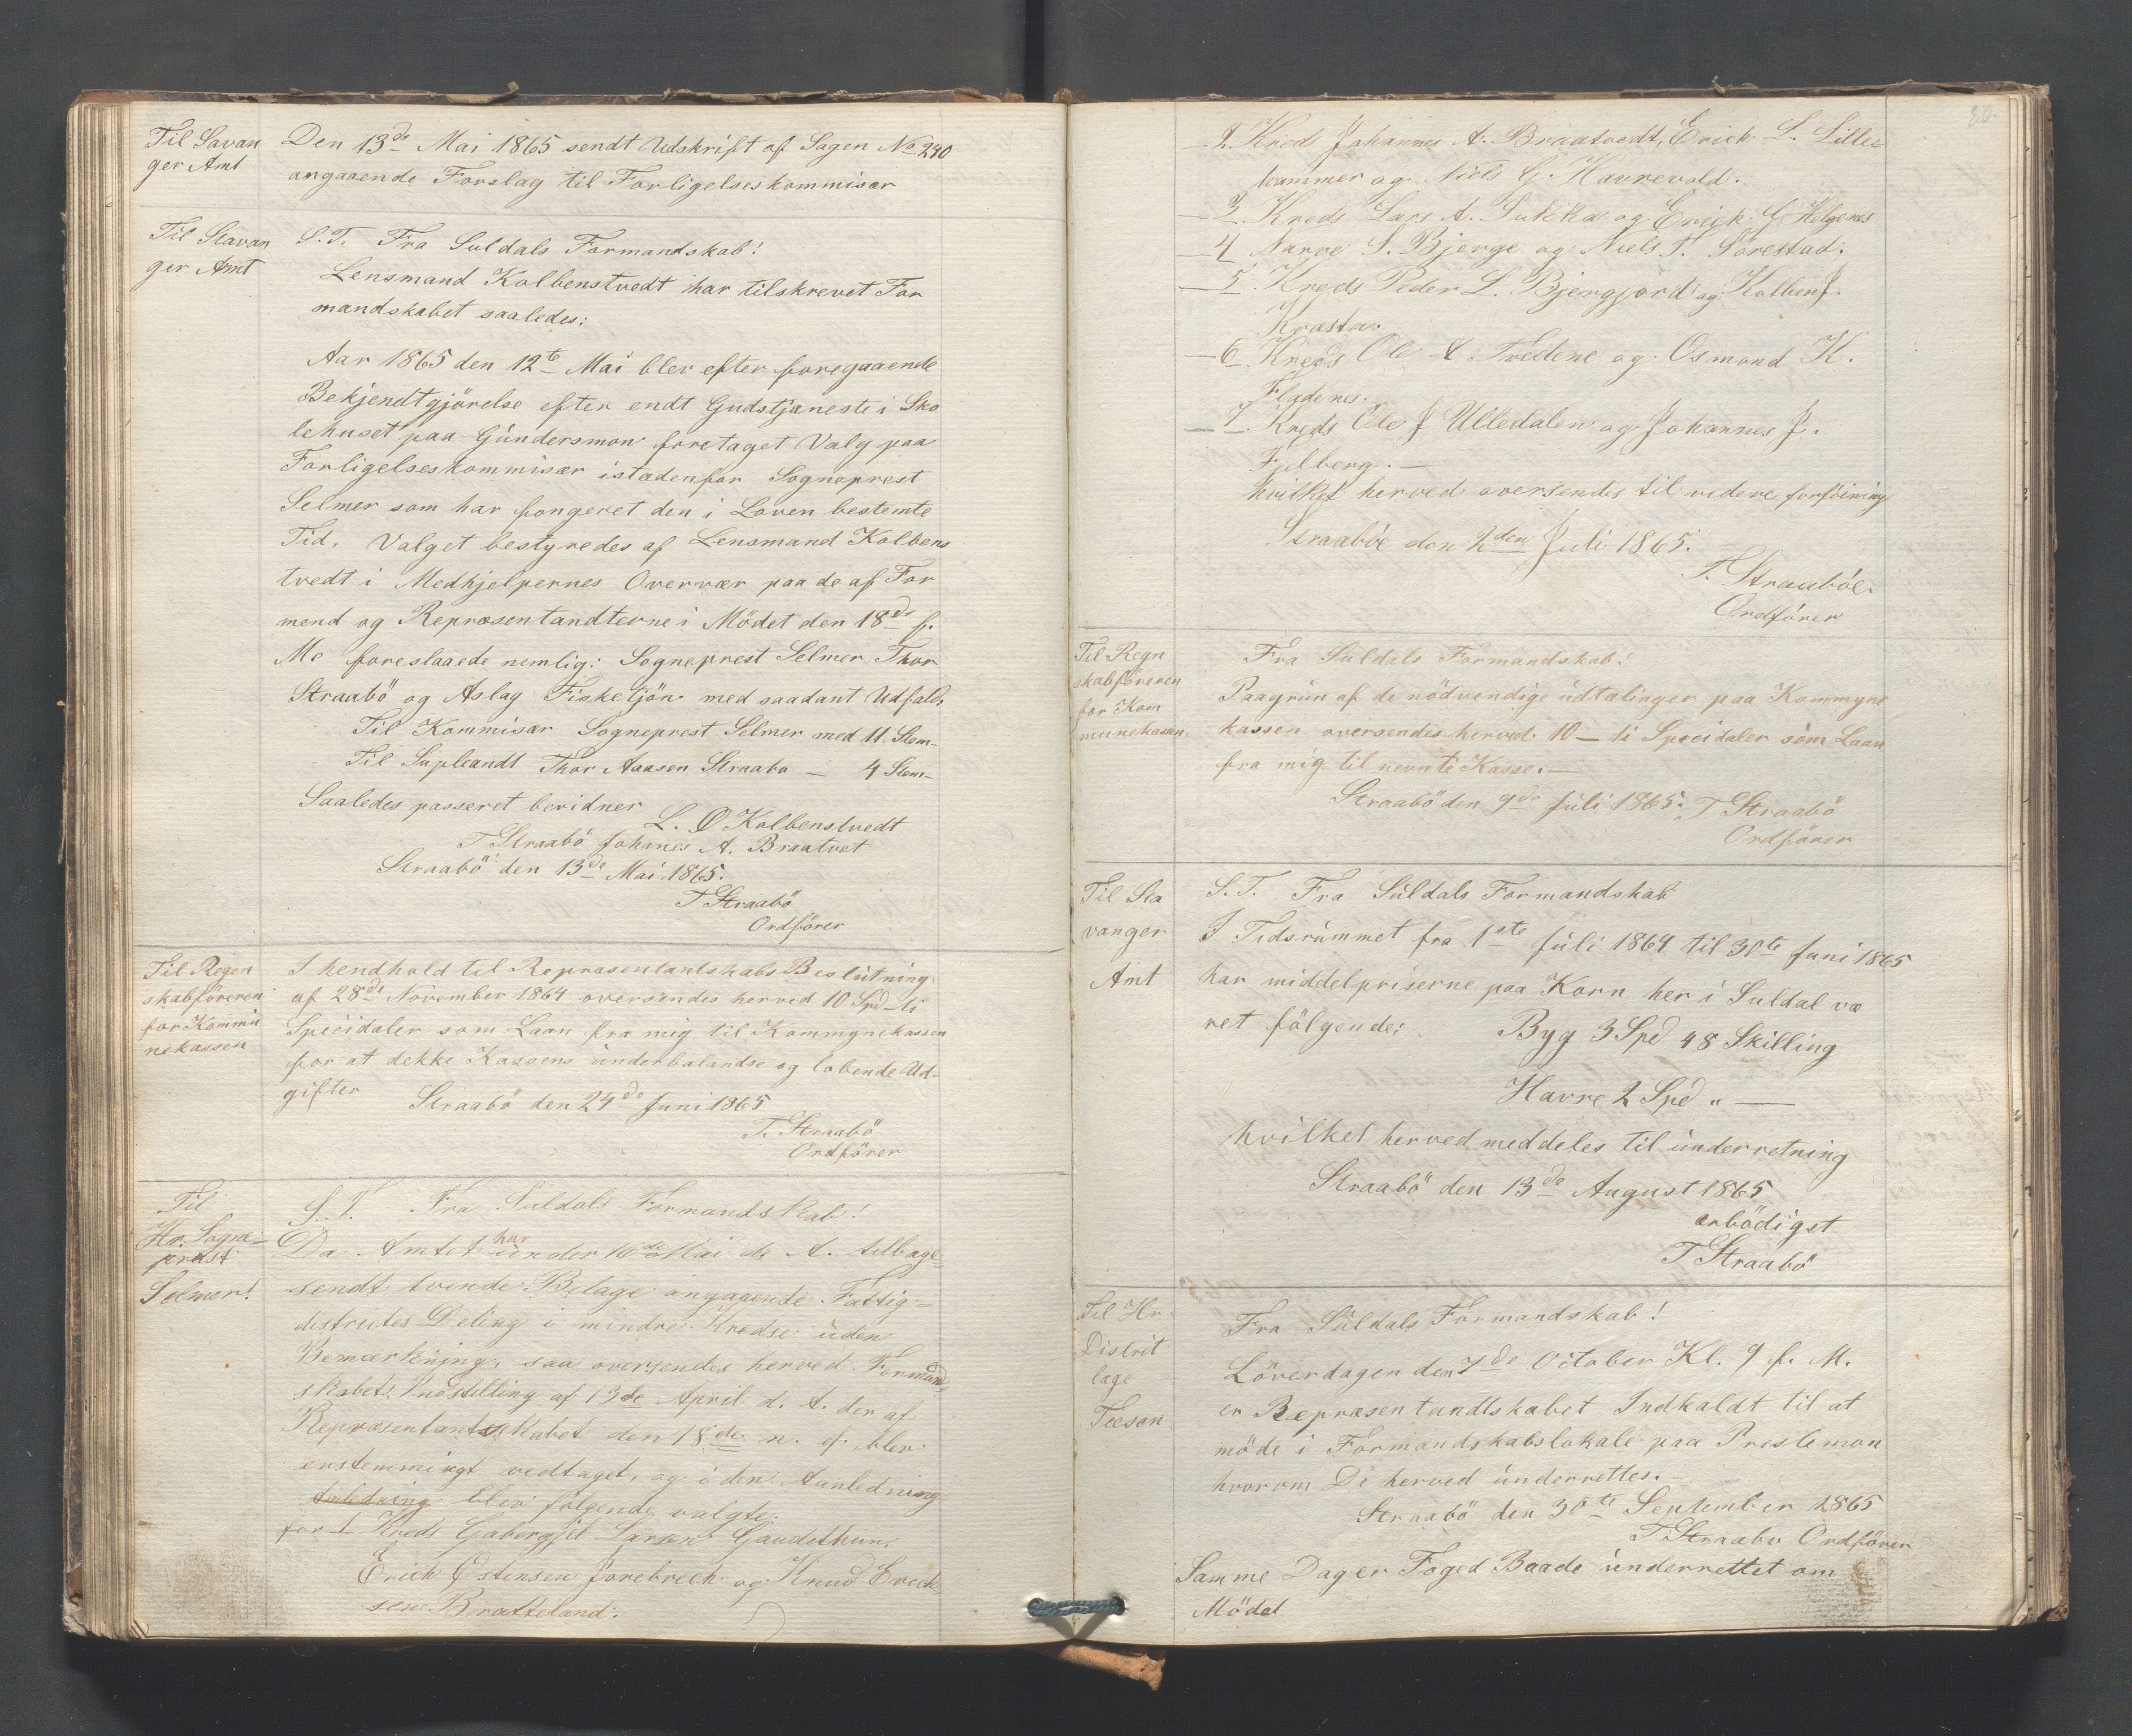 Til Savan
ger Amt
Den 13de Mai 1865 sendt Udskrift af Sagen No 240
angaaende Forslag til Forligelseskommisær
Til Stavan
ger Amt
S. T. Fra Suldals Formandskab!
Lensmand Kolbenstvedt har tilskrevet For
mandskabet saaledes:
Aar 1865 den 12te Mai blev efter foregaaende
Bekjendtgjörelse efter endt Gudstjaneste i Sko
lehuset paa Gundersmon foretaget Valg paa
Forligelseskommisær istadenfor Sogneprest
Selmer som har fongeret den i Loven bestemte
Tid. Valget bestyredes af Lensmand Kolbens
tvedt i Medhjelpernes Overvær paa de af For
mend og Repræsentandterne i Mödet den 18de f.
Me foreslaaede nemlig: Sogneprest Selmer Thor
Straabö og Aslag Fisketjön med saadant Udfald,
Til Kommisær Sogneprest Selmer med 11 Stem-
Til Supleandt Thor Aaasen Straabo — 4 Stem-
Saaledes passeret bevidner
L. O Kolbenstvedt
T Straabö Johanes A. Braatvet
Straabö den 13de Mai 1865.
T Straabö
Ordförer
Til Regen
skabföreren
for Kommu
nekassen
I hendhold til Repræsentantskabs Beslutning
af 28de November 1864 oversendes herved 10 Spd – ti
Specidaler som Laan fra mig til Kommynekassen
for at dekke Kassens underbalandse og lobende Ud-
gifter
Straabö den 24de Juni 1865
T. Straabö
Ordförer
Til
Hr. Sogne-
præst
Selmer!
S. T. Fra Suldals Formandskab!
Da Amtet har under 16de Mai d. A. tilbage
sendt tvende Bilage angaaende Fattig=
distrites Deling i mindre Kredse uden
Bemærkning, saa oversendes herved Formand
skabets Indstilling af 13de April d. A. der af
Repræsentantskabet den 18de n. ef. blev
enstemmingt vedtaget, og i den Aanledning
Anledning blev folgende valgte:
for 1 Kreds Gabergjel Larsen Gaudethun,
Erick Östensen Jorebrech og Knud Erick
sen Bratteland.
80.
— 2. Kreds Johannes A. Braatvedt, Erick L. Lille
kammer og Niels G. Havrevold.
— 3. Kreds Lars A. Sukka og Erick G Helgenes
— 4 Narve S. Bjerge og Niels T. Sorestad.
— 5. Kreds Peder L. Bjergjord og Kolben J.
Krosta.
— 6. Kreds Ole A Tvedene og Osmond K.
Fladenes.
— 7. Kreds Ole J Ulledalen og Johannes J.
Fjelberg. —
hvilket herved oversendes til videre forföining
Straaböe den 2den Juli 1865.
T. Straaböe.
Ordförer
Til Regn
skabföreren
for Kom
munekasen.
Fra Suldals Formandskab!
Paagrun af de nödvendige udtalinger paa Kommyne
kassen oversendes herved 10 – ti Specidaler som Laan
fra mig til nevnte Kasse. —
Straabö den 9de Juli 1865. T Straabö
Ordförer
Til Sta
vanger
Amt
S. T. Fra Suldals Formandskab
I Tidsrummet fra 1ste Juli 1864 til 30te Juni 1865
har middelpriserne paa Korn her i Suldal væ
ret fölgende:
Byg 3 Spd 48 Skilling
Havre 2 Spd „ —
hvilket herved meddeles til underretning
Straabö den 13de August 1865
ærbödigst
T Straabö
Til Hr
Distrit
læge
Teeson
Fra Suldals Formandskab!
Löverdagen den 7de October Kl. 9 f. M.
er Repræsentandtskabet Indkaldt til at
möde i Formandskabslokale paa Preslemon
hvorom De herved underrettes. —
Straabö den 30te September 1865
T Straabo Ordförer
Samme Dag er Foged Baade underrettet om
Mödet